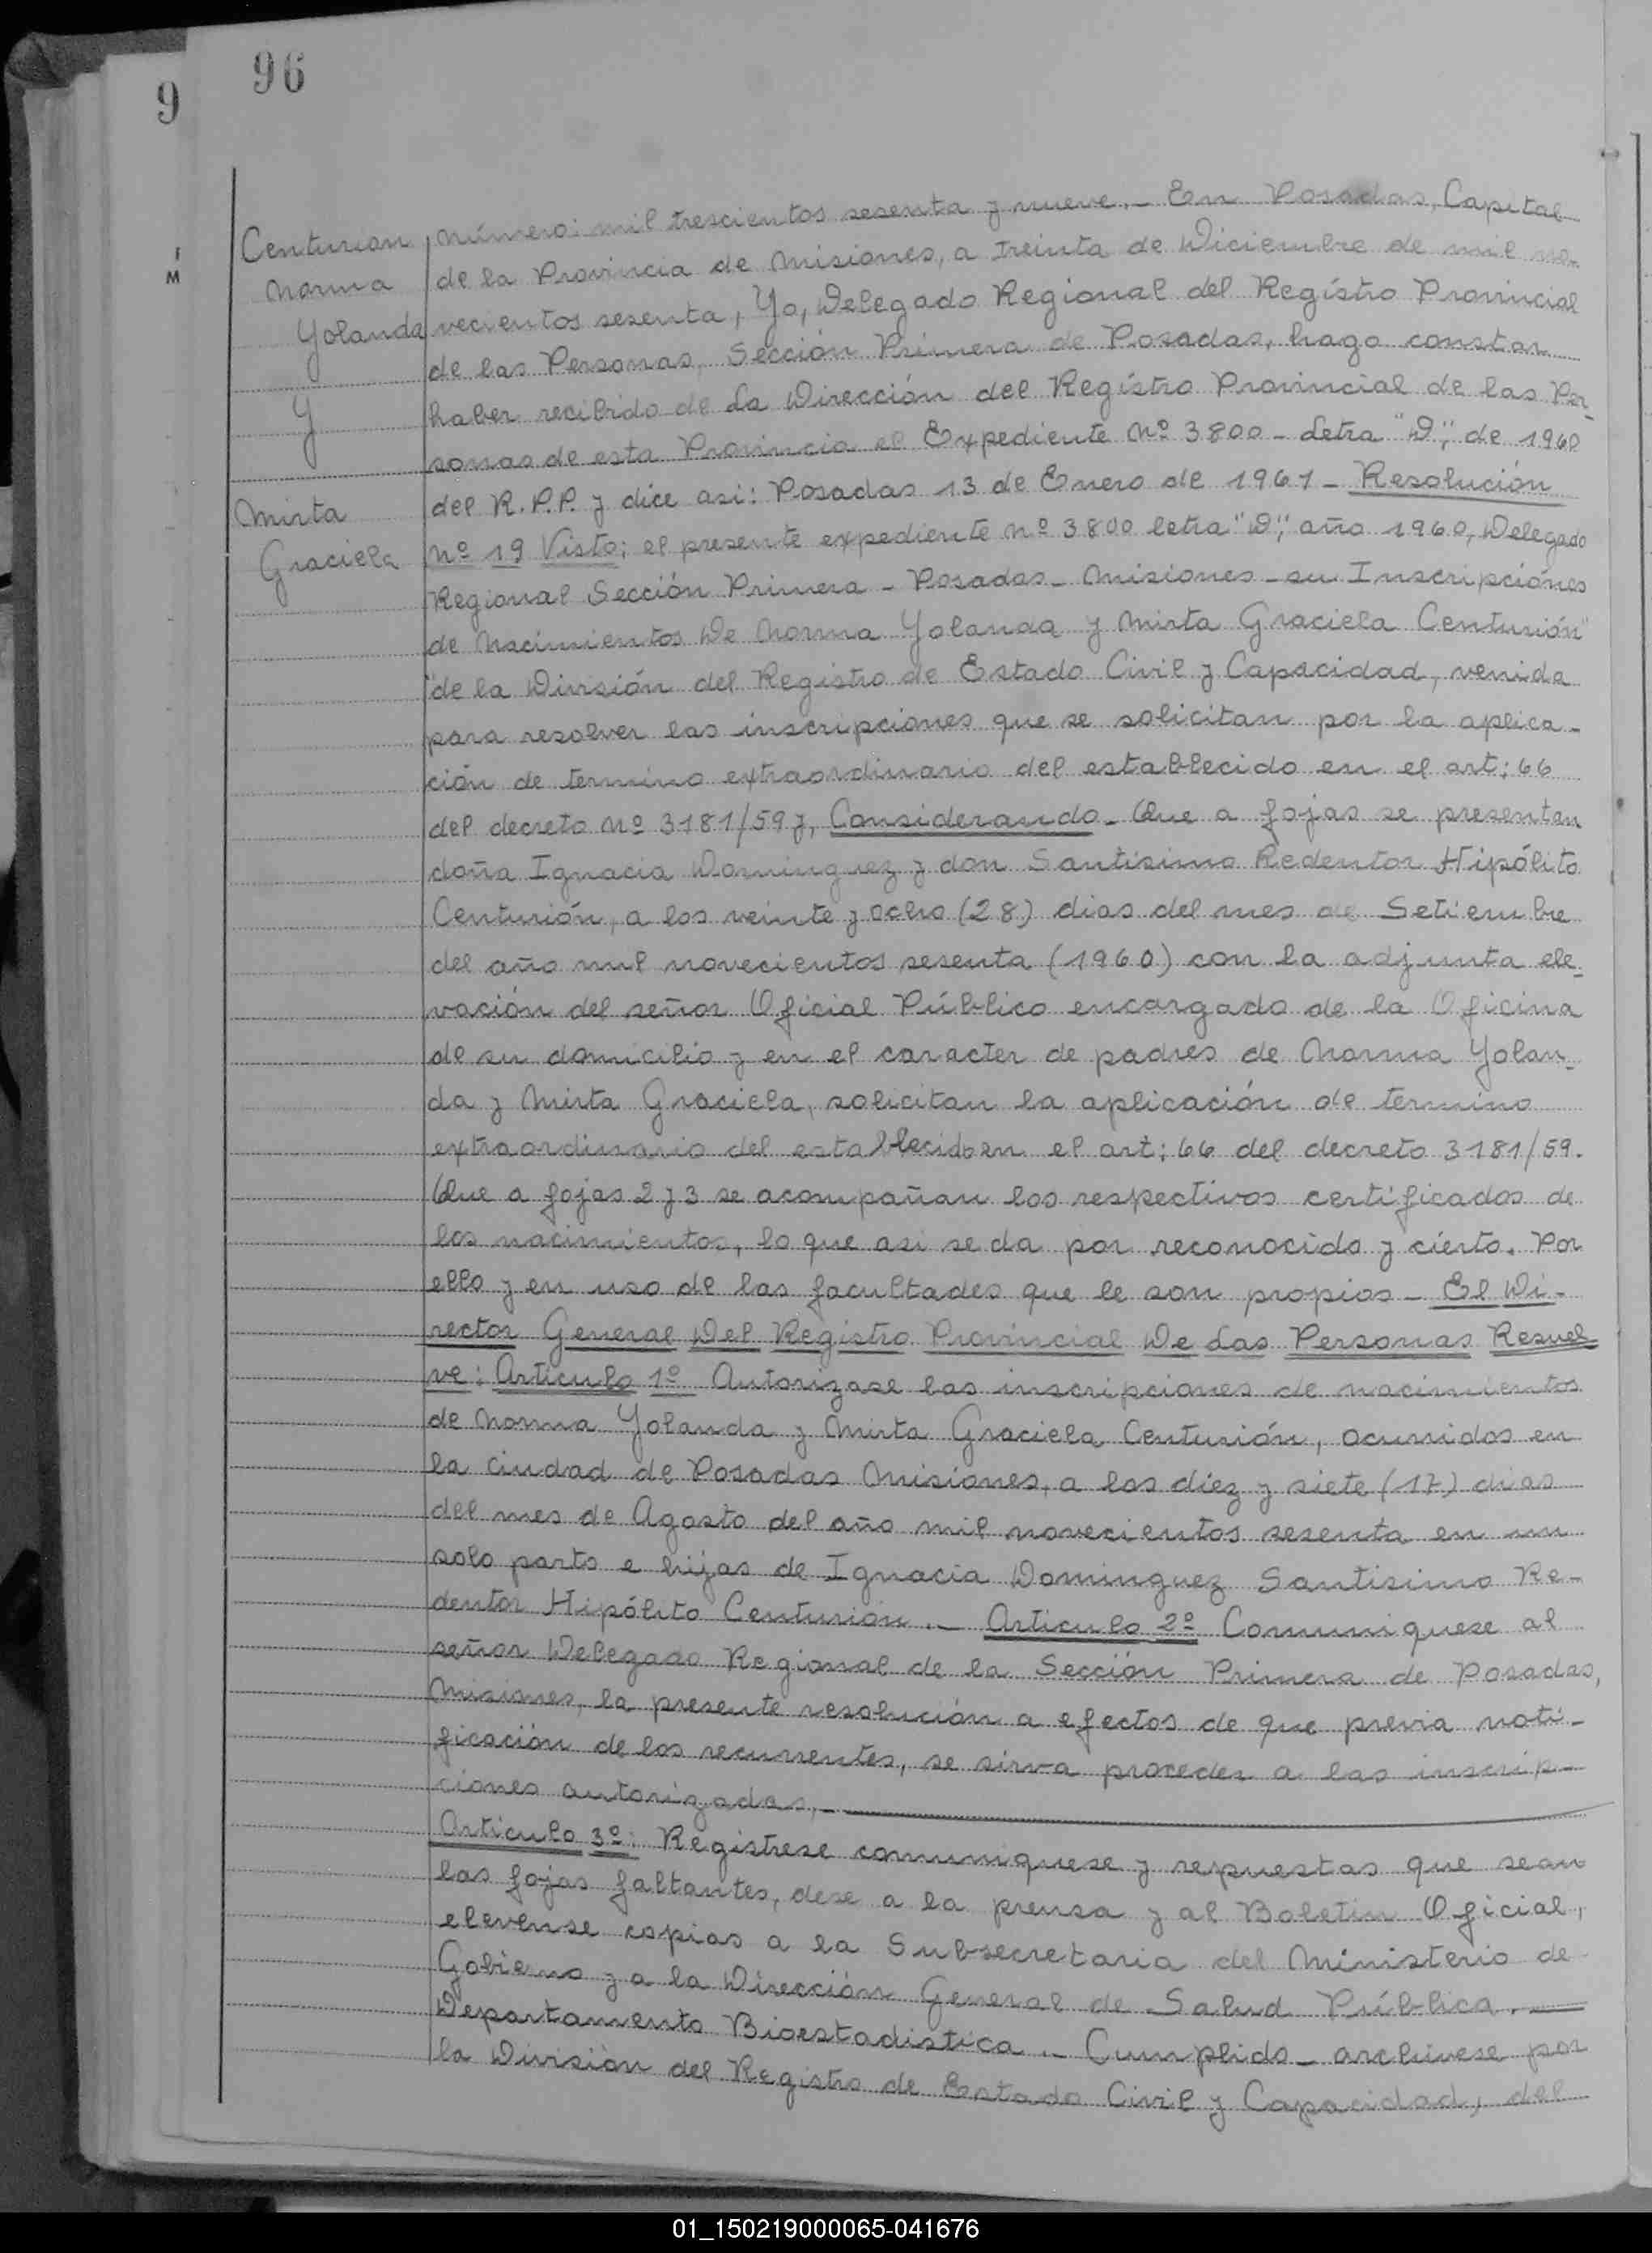 96
9
I
M
Centurion
Norma
Yolanda
Y
Mirta
Graciela
número: mil trescientos sesenta y nueve.- En Posadas, Capital
de la Provincia de Misiones, a treinta de Diciembre de mil no-
vecientos sesenta, Yo, Delegado Regional del Regístro Provincial
de las Personas, Sección Primera de Posadas, hago constar
haber recibido de La Dirección del Regístro Provincial de las Per-
sonas de esta Provincia el Expediente Nº 3800 - Letra "D", de 1960
del R.P.P. y dice asi: Posadas 13 de Enero de 1961 - Resolución
Nº 19 Visto: el presente expediente nº 3800 letra "D", año 1960, Delegado
Regional Sección Primera - Posadas - Misiones - su Inscripciónes
de Nacimientos De Norma Yolanda y Mirta Graciela Centurión"
"de la División del Registro de Estado Civil y Capacidad, venida
para resolver las inscripciones que se solicitan por la aplica-
ción de termino extraordinario del establecido en el art: 66
del decreto Nº 3181/59 y, Considerando - Que a fojas se presentan
doña Ignacia Dominguez y don Santisimo Redentor Hipólito
Centurión, a los veinte y ocho (28) dias del mes de Setiembre
del año mil novecientos sesenta (1960) con la adjunta ele-
vación del señor Oficial Público encargado de la Oficina
de su domicilio y en el caracter de padres de Norma Yolan-
da y Mirta Graciela, solicitan la aplicación de termino
extraordinario del establecido en el art: 66 del decreto 3181/59.
Que a fojas 2 y 3 se acompañan los respectivos certificados de
los nacimientos, lo que asi se da por reconocido y cierto. Por
ello y en uso de las facultades que le son propias - El Di-
rector General Del Registro Provincial De Las Personas Resuel
ve: Articulo 1º Autorizase las inscripciones de nacimientos
de Norma Yolanda y Mirta Graciela Centurión, ocurridos en
la ciudad de Posadas Misiones, a los diez y siete (17) dias
del mes de Agosto del año mil novecientos sesenta en un
solo parto e hijas de Ignacia Dominguez Santisimo Re-
dentor Hipólito Centurión.- Articulo 2º Comuniquese al
señor Delegado Regional de la Sección Primera de Posadas,
Misiones, la presente resolución a efectos de que previa noti-
ficación de los recurrentes, se sirva proceder a las inscrip-
ciones autorizadas,-
Articulo 3º: Registrese comuniquese y respuestas que sean
las fojas faltantes, dese a la prensa y al Boletin Oficial,
elevense copias a la Subsecretaria del Ministerio de
Gobierno y a la Dirección General de Salud Pública.
Departamento Bioestadistica.- Cumplido - archivese por
la División del Registro de Estado Civil y Capacidad, del
01_150219000065-041676